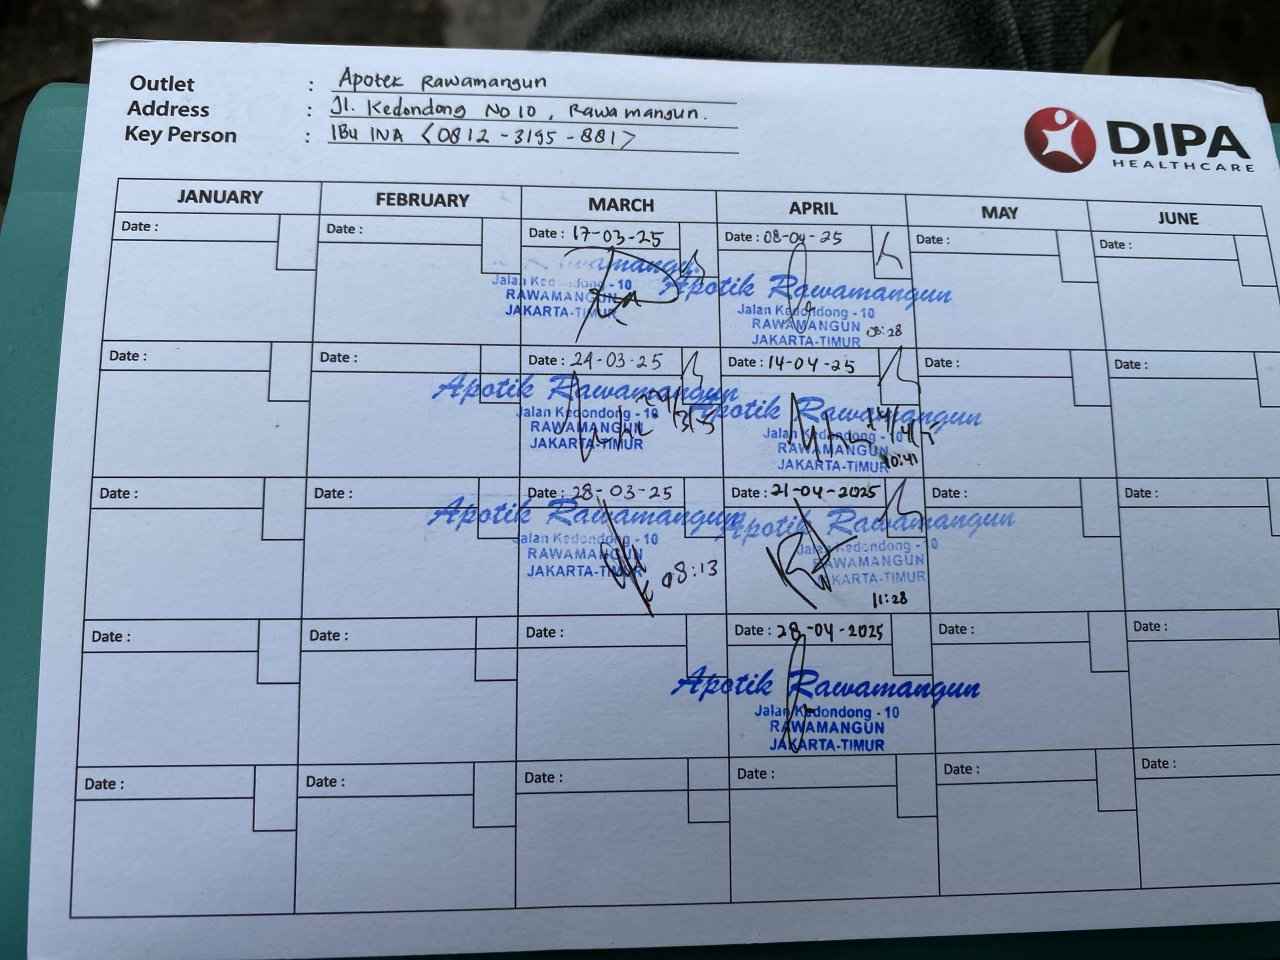 Outlet : Apotek Rawamangun
Address : Jl. Kedondong No 10, Rawamangun.
Key Person : IBU INA <0812-3195-881>
DIPA
HEALTHCARE
JANUARY FEBRUARY MARCH APRIL MAY JUNE
Date : Date : Date : 17-03-25 Date : 08-04-25 Date : Date :
Jalan - 10
RAWAMANGUN
JAKARTA-TIMUR
Apotik Rawamangun
Jalan Kedondong - 10
RAWAMANGUN
JAKARTA-TIMUR
08:28
Date : Date : Date : 24-03-25 Date : 14-04-25 Date : Date :
Apotik Rawamangun
Jalan Kedondong - 10
RAWAMANGUN
JAKARTA-TIMUR
Apotik Rawamangun
Jalan Kedondong - 10
RAWAMANGUN
JAKARTA-TIMUR
10:41
Date : Date : Date : 28-03-25 Date : 21-04-2025 Date : Date :
Apotik Rawamangun
Jalan Kedondong - 10
RAWAMANGUN
JAKARTA-TIMUR
08:13
Apotik Rawamangun
Jalan Kedondong - 10
RAWAMANGUN
JAKARTA-TIMUR
11:28
Date : Date : Date : Date : 28-04-2025 Date : Date :
Apotik Rawamangun
Jalan Kedondong - 10
RAWAMANGUN
JAKARTA-TIMUR
Date : Date : Date : Date : Date : Date :